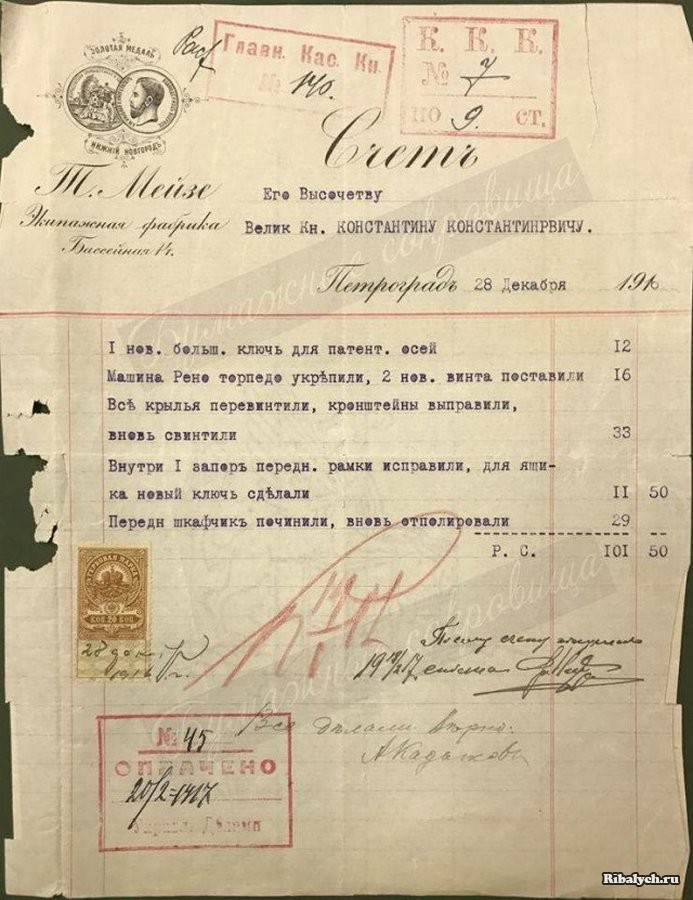 ЗОЛОТАЯ МЕДАЛЬ
НИЖНІЙ НОВГОРОДЪ
Главн. Кас. Кн.
№ 140.
К. К. К.
№ 7
ПО 9. СТ.
Счетъ
Т. Мейзе
Экипажная фабрика
Бассейная 14.
Его Высочетву
Велик Кн. КОНСТАНТИНУ КОНСТАНТИНРВИЧУ.
Петроградъ 28 Декабря 1916
I нов. больш. ключь для патент. осей 12
Машина Рено торпедо укрѣпили, 2 нов. винта поставили 16
Всѣ крылья перевинтили, кронштейны выправили,
вновь свинтили 33
Внутри I запоръ передн. рамки исправили, для ящи-
ка новый ключь сдѣлали II 50
Передн шкафчик починили, вновь отполировали 29
Р. С. IOI 50
КОП 20 КОП
28 дек
1916 г.
По сему счету получилъ
Все дѣлали вѣрно:
№ 45
ОПЛАЧЕНО
20/2-1917
Управл. Дѣлами
Бумажные сокровища
Бумажные сокровища
Ribalych.ru